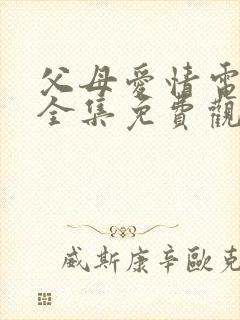 父母愛情電
全集免費觀
威斯康辛歐克